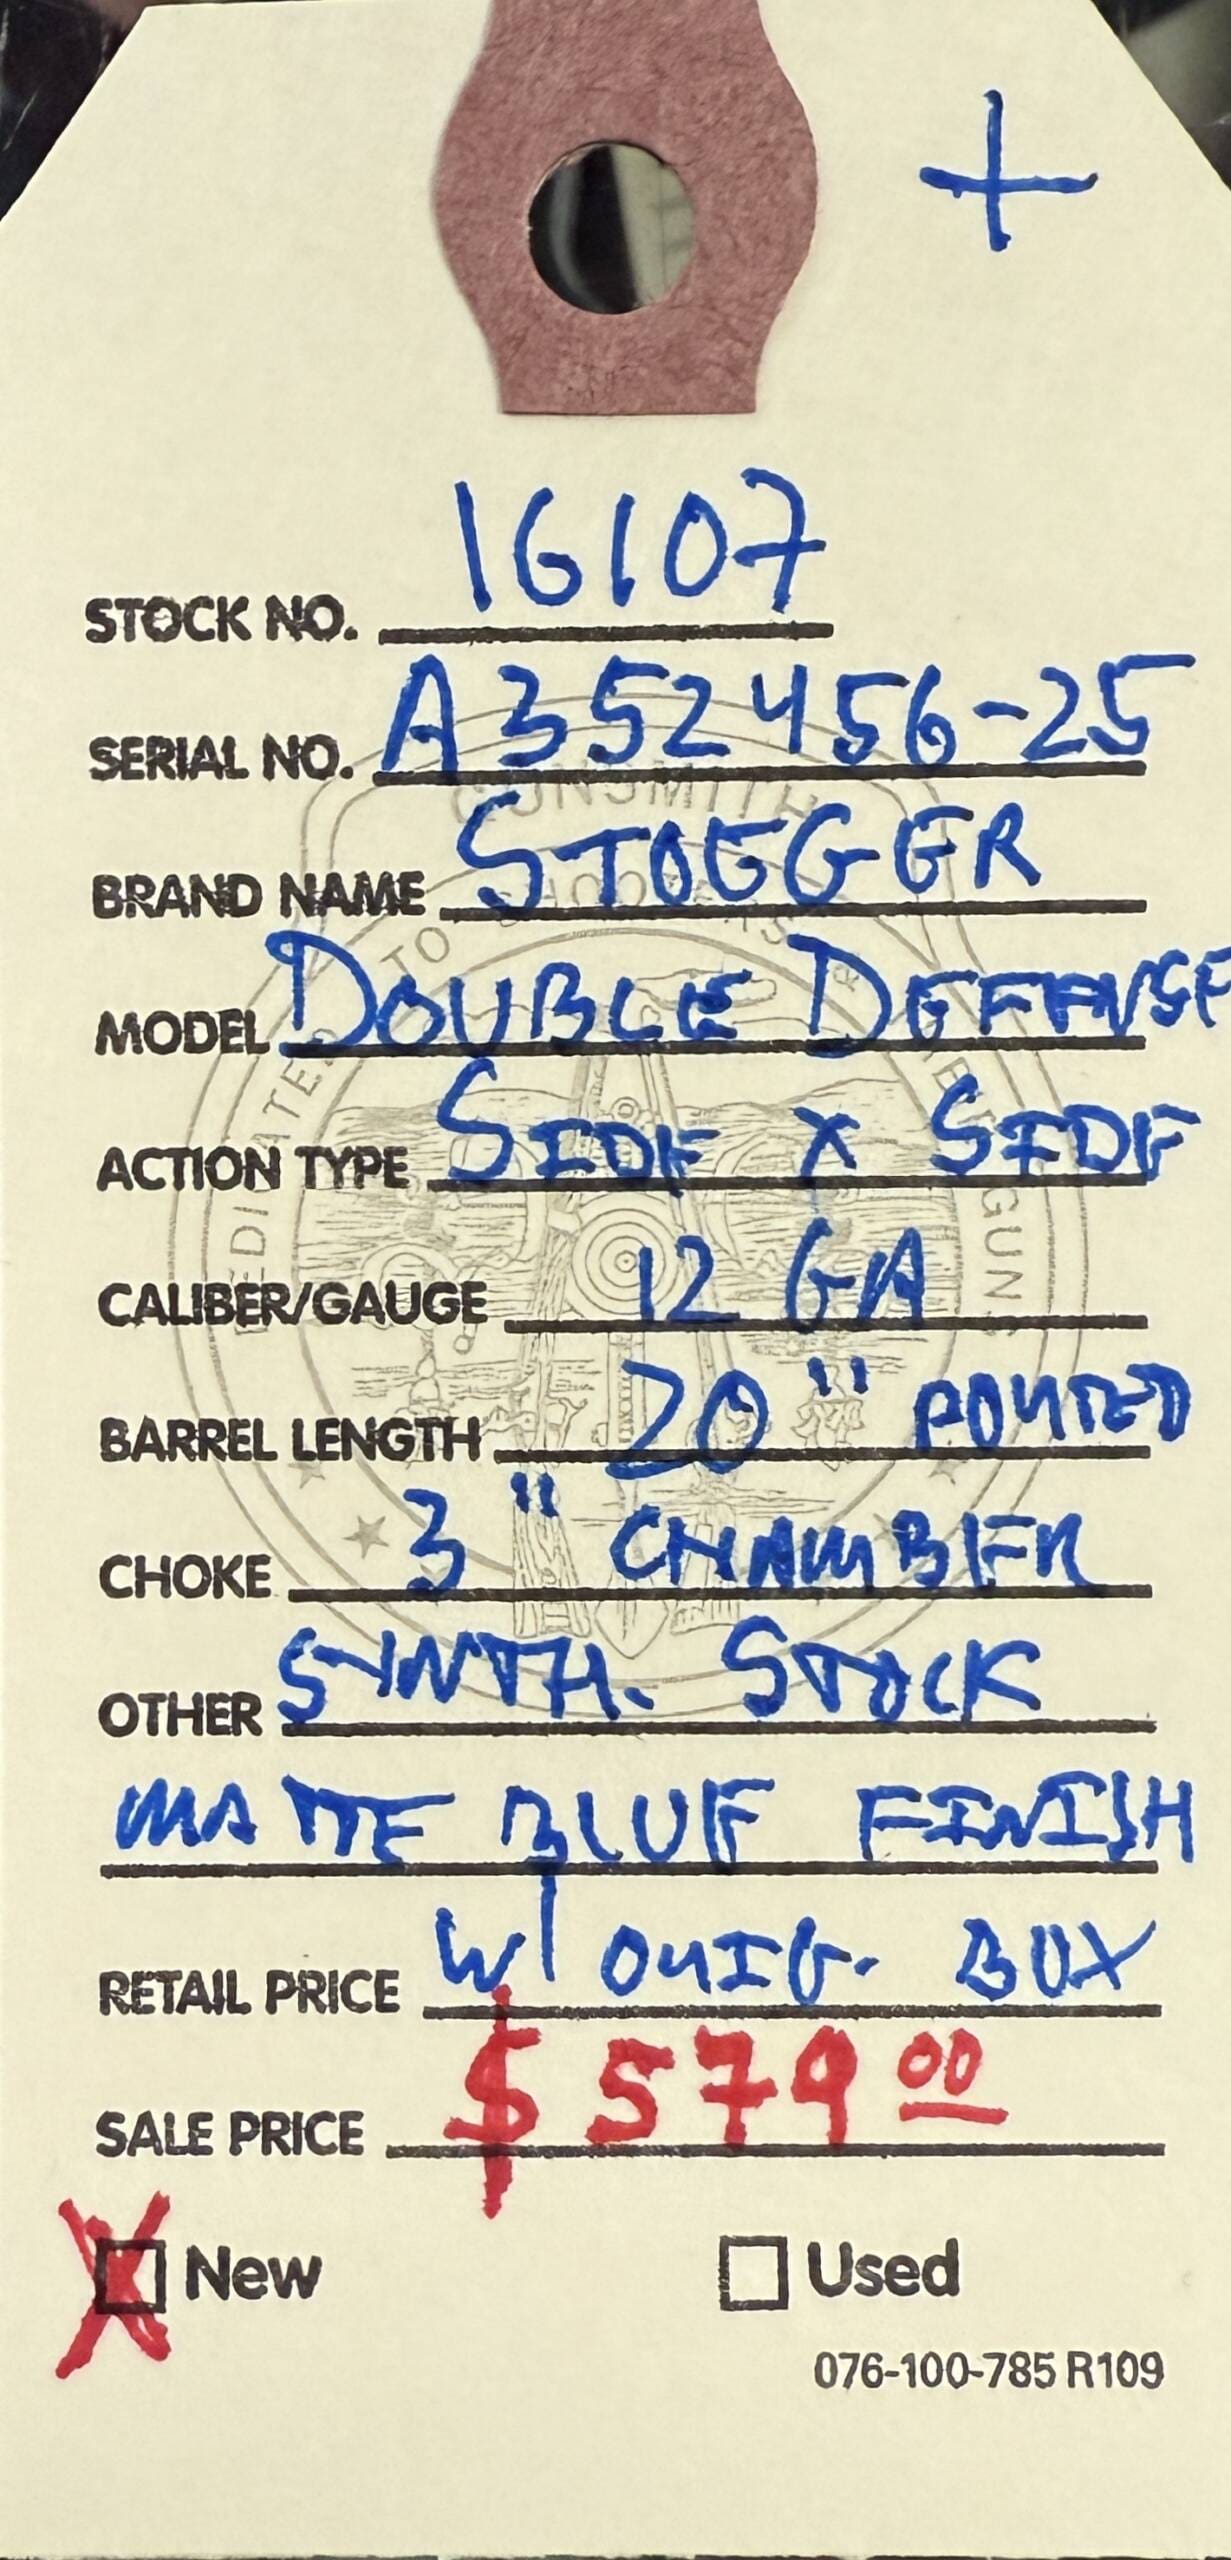 +
STOCK NO. 16107
SERIAL NO. A352456-25
BRAND NAME STOEGER
MODEL DOUBLE DEFENSE
ACTION TYPE SIDE X SIDE
CALIBER/GAUGE 12 GA
BARREL LENGTH 20" PORTED
CHOKE 3" CHAMBER
OTHER SYNTH. STOCK
MATTE BLUE FINISH
RETAIL PRICE W/ ORIG. BOX
SALE PRICE $579.00
X New Used
076-100-785 R109
GUNSMITH
DEDICATED TO SHOOTERS
GUNS